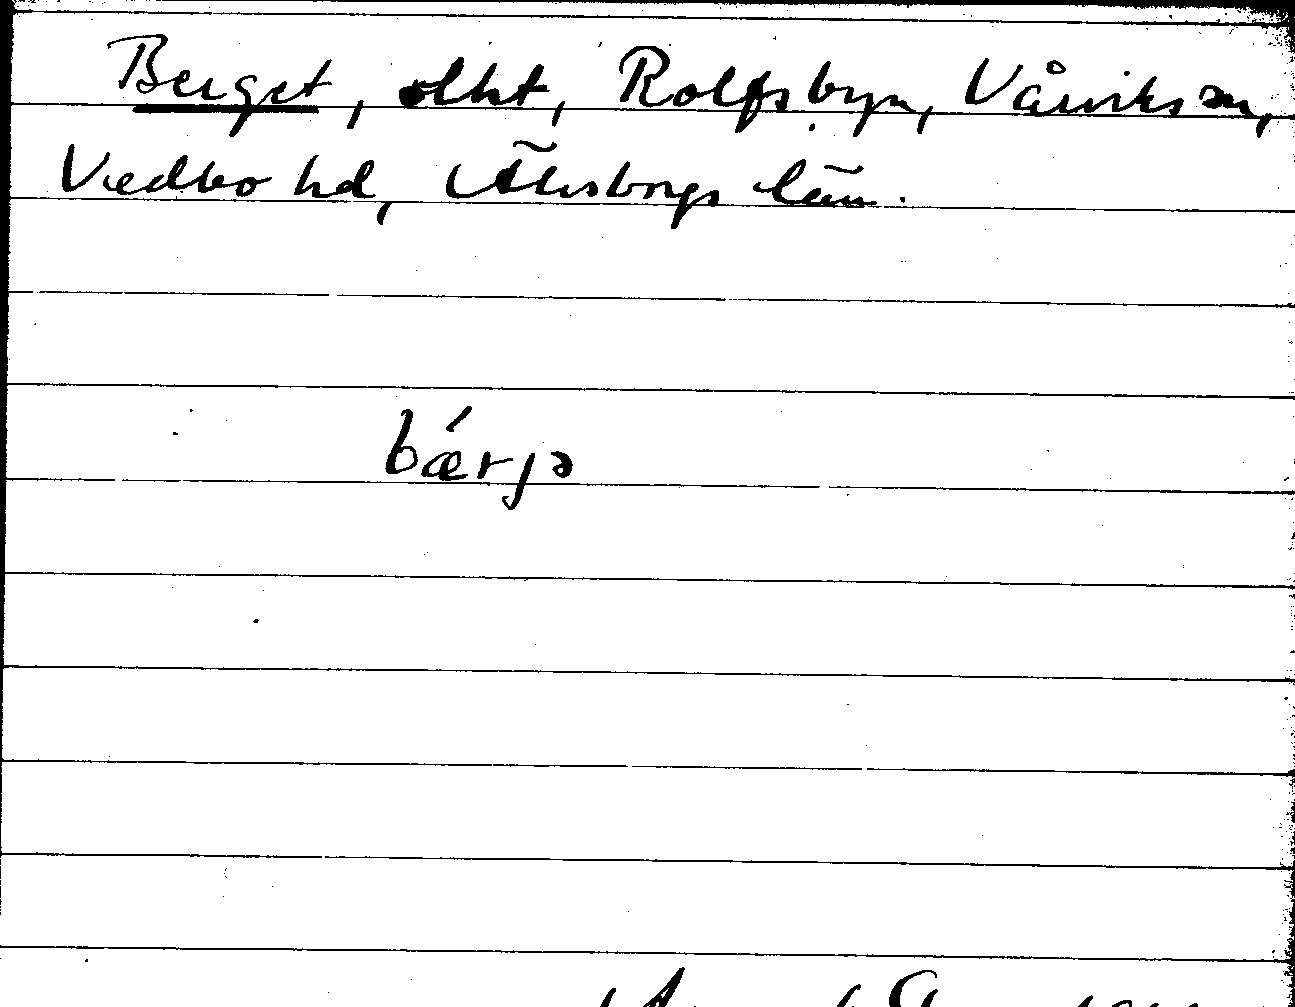 Berget, olht, Rolfsbyn, Vårviks sn,
Vedbo hd, Älvsborgs län.
bǽrjə